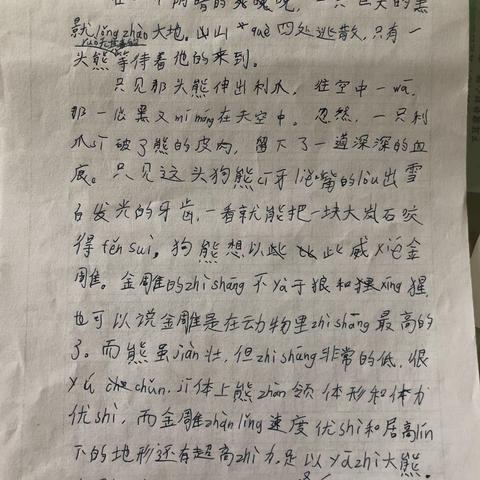 在一个阴暗的 晚，一只巨大的黑
就lǒng zhào大地。山 què四处逃散，只有一
ruò无其事的
头熊等待着他的来到。
只见那头熊伸出利爪，往空中一wā，
那一低黑又mí máng在天空中。忽然，一只利
爪sī破了熊的皮肉，留下了一道深深的血
痕。只见这头狗熊cī牙liě嘴的lòu出雪
白发光的牙齿，一看就能把一块大岩石咬
得fěn suì。狗熊想以此此威xié金
雕。金雕的zhì shāng不yà于狼和猩xīng猩，
也可以说金雕是在动物里zhì shāng最高的
了。而熊虽jiàn壮，但zhì shāng非常的低，很
yú chǔn，jī体上熊zhàn领体形和体力
优shì，而金雕zhàn lǐng速度优shì和居高lín
下的地形还有超高zhì力，足以yā zhì大熊。